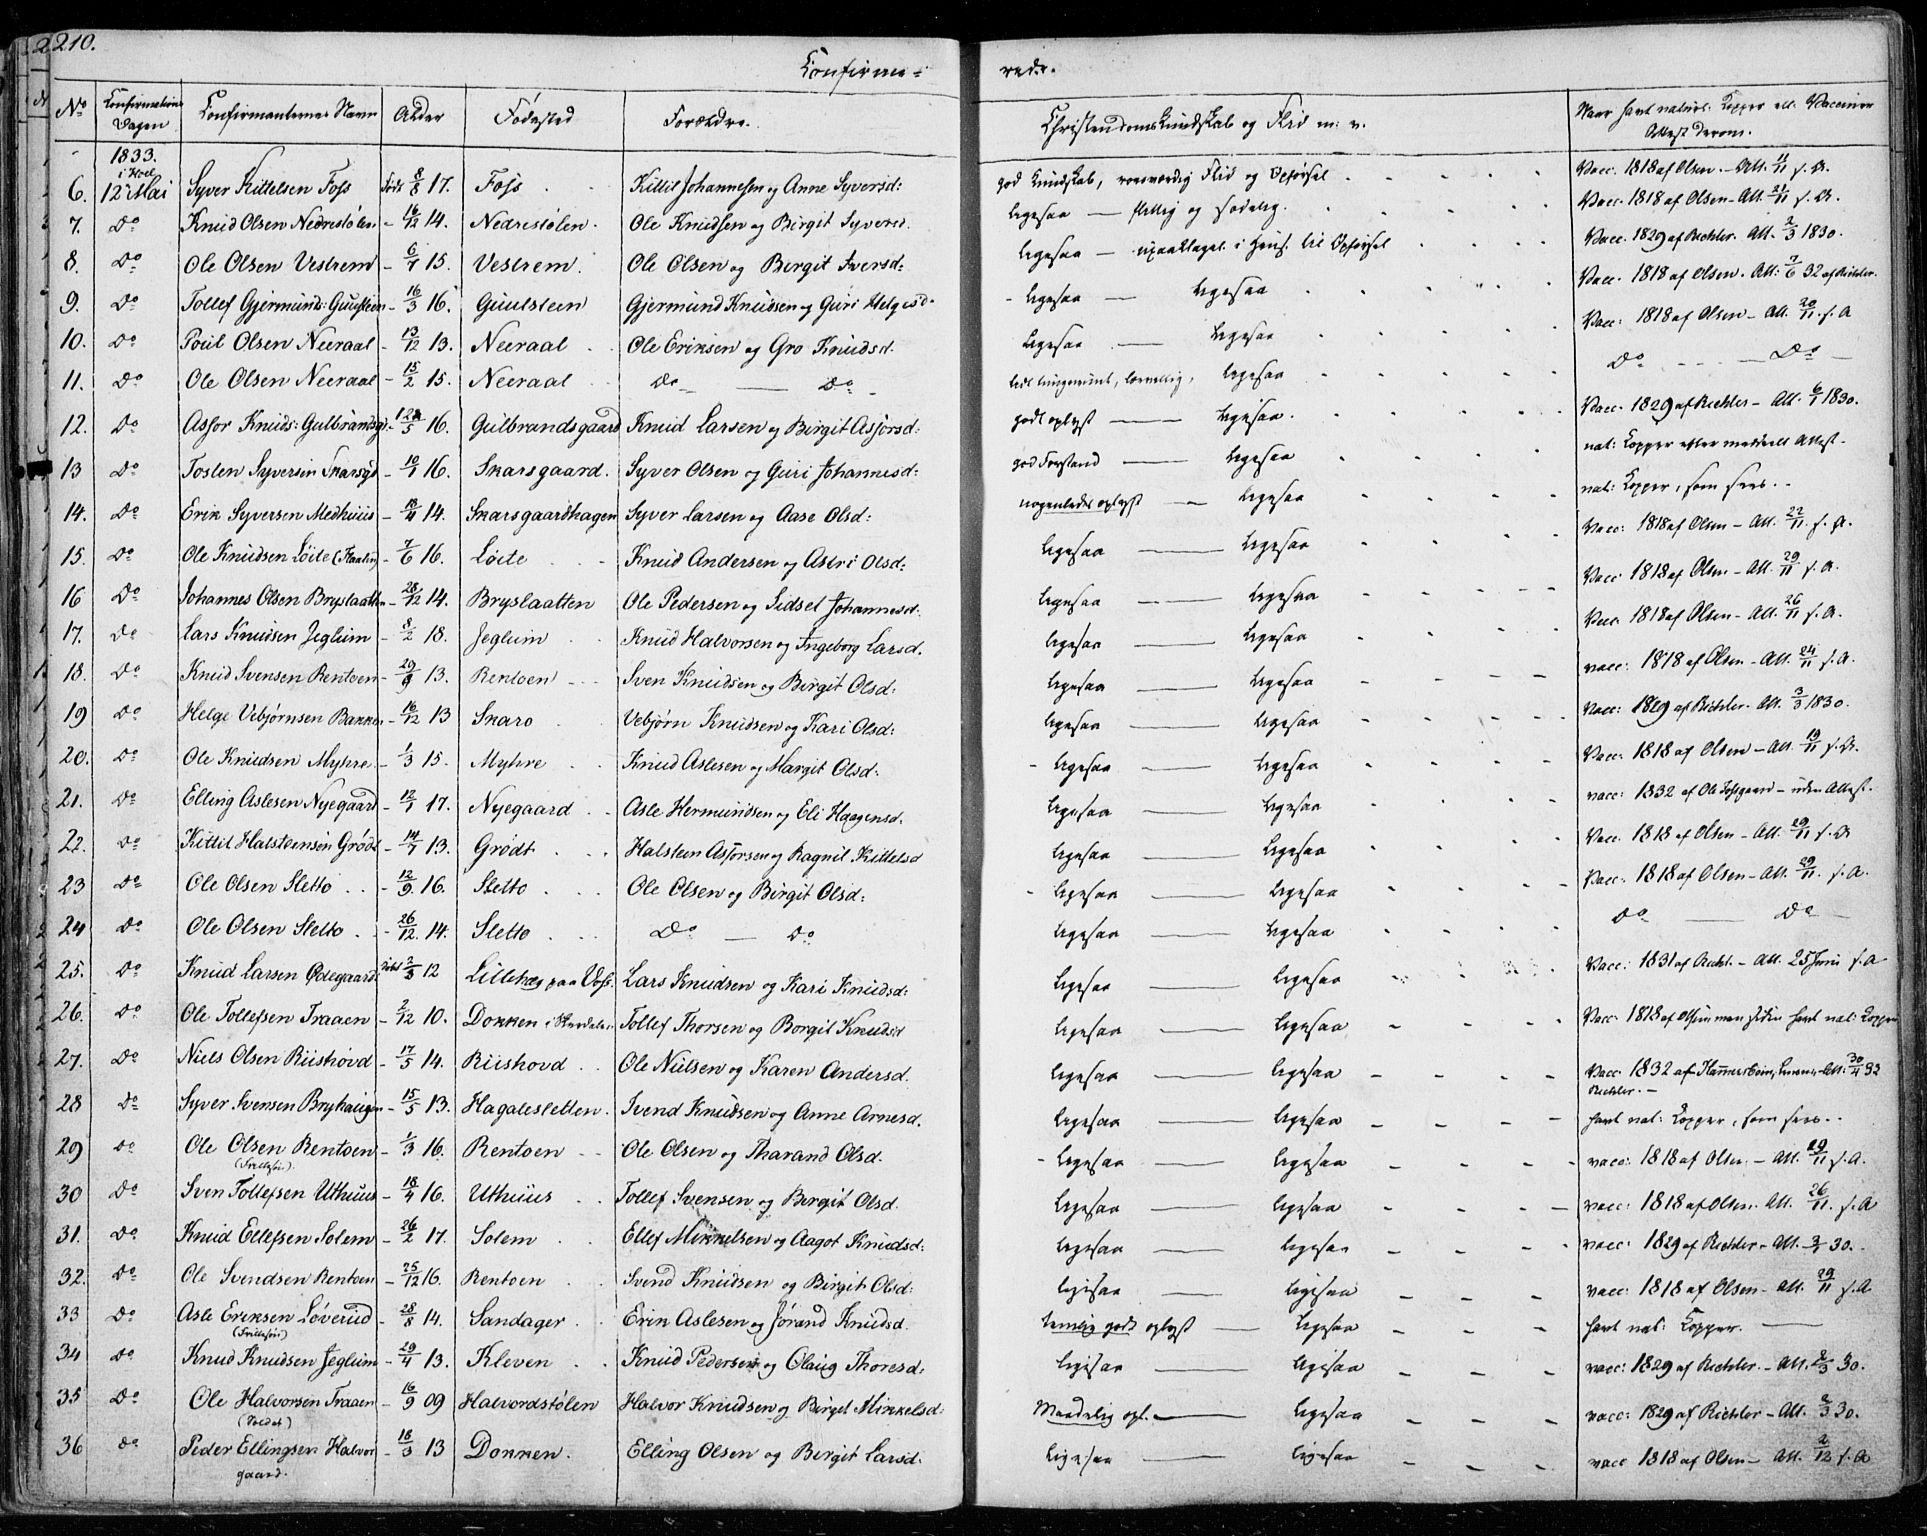 210.
Confirme-
rede.
No
Confirmations Dagen
Confirmanternes Navn
Alder
Fødested
Forældre.
Christendomskundskab og Flid m: v.
Naar havt naturl: Kopper ell: Vaccinen
Attest derom.
1833.
6. 12 Mai Syver Kittelsen Foss Født 8/8 17. Foss Kittil Johannesen og Anne Syversd: god Kundskab, roesværdig Flid og Opførsel Vacc. 1818 af Olsen - Att. 11/11 s. A.
7. Do Knud Olsen Nedrestølen - 16/12 14. Nedrestølen. Ole Knudsen og Birgit Syversd. ligesaa — flittig og sædelig. Vacc. 1818 af Olsen - Att. 21/11 s. A.
8. Do Ole Olsen Vestrem - 6/7 15. Vestrem. Ole Olsen og Birgit Iversd: ligesaa — Vacc. 1829 af Richter. Att. 2/3 1830.
9. Do Tollef Gjermunds: Guulsteen - 16/3 16. Guulsteen Gjermund Knudsen og Guri Helgesd. ligesaa — ligesaa Vacc. 1818 af Olsen. Att: 7/6 32 af Richter.
10. Do Poul Olsen Neeraal - 13/12 13. Neeraal Ole Eriksen og Gro Knudsd. ligesaa — ligesaa Vacc: 1818 af Olsen - Att. 20/11 s. A
11. Do Ole Olsen Neeraal - 15/2 15. Neeraal Do — Do ligesaa Do — Do
12. Do Asfor Knuds: Gulbrandsg: - 5 16. Gulbrandsgaard Knud Larsen og Birgit Asforsd: godt oplyst — ligesaa. Vacc. 1829 af Richter - Att. 6/1 1830.
13 Do Tosten Syversen Skarsgd - 10/1 16. Skarsgaard. Syver Olsen og Guri Johannesd: god Forstand — ligesaa nat: Kopper efter meddeelt Attest.
14. Do Erik Syversen Medhuus - 18/4 14. Skarsgaardhagen Syver Larsen og Aase Olsd: nogenledes oplyst — ligesaa nat: Kopper, som sees.
15. Do Ole Knudsen Löite - 7/6 16. Löite Knud Andersen og Astri Olsd: ligesaa — ligesaa Vacc: 1818 af Olsen - Att. 22/11 s. A.
16 Do Johannes Olsen Bryslaatten - 28/12 14. Bryslaatten Ole Pedersen og Sidsel Johannesd. ligesaa — ligesaa Vacc. 1818 af Olsen - Att. 29/11 s. A.
17. Do Lars Knudsen Jeglum - 8/2 18. Jeglum Knud Halvorsen og Ingeborg Larsd. ligesaa — ligesaa Vacc. 1818 af Olsen - Att. 26/11 s. A.
18. Do Knud Svensen Rentoen - 29/9 13. Rentoen Sven Knudsen og Birgit Olsd: ligesaa — ligesaa vacc: 1818 af Olsen - Att. 24/11 s. A.
19 Do Helge Vebjørnsen Bakken - 16/12 13 Skaro Vebjörn Knudsen og Kari Olsd: ligesaa — ligesaa Vacc: 1829 af Richter. Att. 3/3 1830.
20. Do Ole Knudsen Myhre - 1/3 15. Myhre Knud Aslesen og Margit Olsd: ligesaa — ligesaa Vacc: 1818 af Olsen - Att. 19/11 s. A.
21. Do Elling Aslesen Nyegaard - 12/1 17. Nyegaard Asle Hermundsen og Eli Haagensd. ligesaa — ligesaa vacc: 1832 af Ole - uden Attest.
22. Do Kittil Halsteensen Grödt - 14/7 13. Grödt Halsteen Asforsen og Ragnil Kittelsd ligesaa — ligesaa Vacc. 1818 af Olsen - Att. 29/11 s. A
23 Do Ole Olsen Sletto - 12/9 16. Sletto Ole Olsen og Birgit Olsd: ligesaa — ligesaa Vacc. 1818 af Olsen - Att. 29/11 s. A.
24 Do Ole Olsen Sletto - 26/12 14. Sletto Do — Do ligesaa — ligesaa Do — Do
25. Do Knud Larsen Ødegaard Født 2/3 12 paa Vos. Lars Knudsen og Kari Knudsd: ligesaa — ligesaa Vacc: 1831 af Richt. - Att. 25 Juni s. A
26. Do Ole Tollefsen Traaen - 2/12 10. Dokken i Tollef Thorsen og Borgil Knudsd ligesaa — ligesaa Vacc: 1818 af Olsen, men siden havt nat: Kopper
27. Do Niels Olsen Riishovd - 17/5 14. Riishovd Ole Nielsen og Karen Andersd. ligesaa — ligesaa Vacc 1832 af - Att: 30/4 32
Richter.
28 Do Syver Svensen Bryhaugen - 15/5 13. Hagaleslelten. Svend Knudsen og Anne Arnesd. ligesaa — ligesaa havt nat: Kopper, som sees.
29 do Ole Olsen Rentoen - 1/3 16. Rentoen Ole Olsen og Tharand Olsd. ligesaa — ligesaa vacc: 1818 af Olsen. - Att. 19/11 s. A.
30 Do Sven Tollefsen Uthuus - 18/4 16. Uthuus Tollef Svensen og Birgit Olsd. ligesaa — ligesaa vacc: 1818 af Olsen. Att. 26/11. s. A
31. Do Knud Ellefsen Solem - 26/2 17. Solem Ellef Mikkelsen og Aagot Knudsd: ligesaa — ligesaa vacc: 1829 af Richter - Att. 30.
32. Do Ole Svendsen Rentoen - 25/12 16. Rentoen Svend Knudsen og Birgit Olsd: ligesaa — ligesaa vacc: 1818 af Olsen - Att. 29/11 s. A
33 Do Asle Eriksen Löverud - 28/8 14. Sandager Erik Aslesen og Jörand Knudsd. temlig godt oplyst — ligesaa havt nat: Kopper. —
34 do Knud Knudsen Jeglum - 29/4 13. Kleven Knud Pedersen og Olaug Thoresd: ligesaa — ligesaa vacc: 1829 af Richter. - Att. 2/3 30.
35 Do Ole Halvorsen Traaen - 16/9 09 Halvordstölen Halvor Knudsen og Birget Mikkelsd: Maadelig opl. — ligesaa vacc: 1829 af Richter - Att. 2/3 30.
(Soldat)
36 do Peder Ellingsen Halvor - 18/3 13 Dokken. Elling Olsen og Birgit Larsd: ligesaa — ligesaa vacc 1818 af Olsen - Att. 2/12 s. A
gaard.